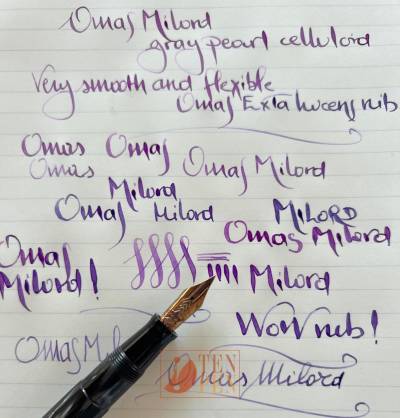 Omas Milord
gray pearl celluloid
Very smooth and flexible
Omas Exta lucens nib
Omas Omas
Omas Omas Milord
Milord
Omas Milord MILORD
Omas Milord
Omas
Milord! Milord
Wow nib!
Omas M
TEN
TEN
Omas Milord